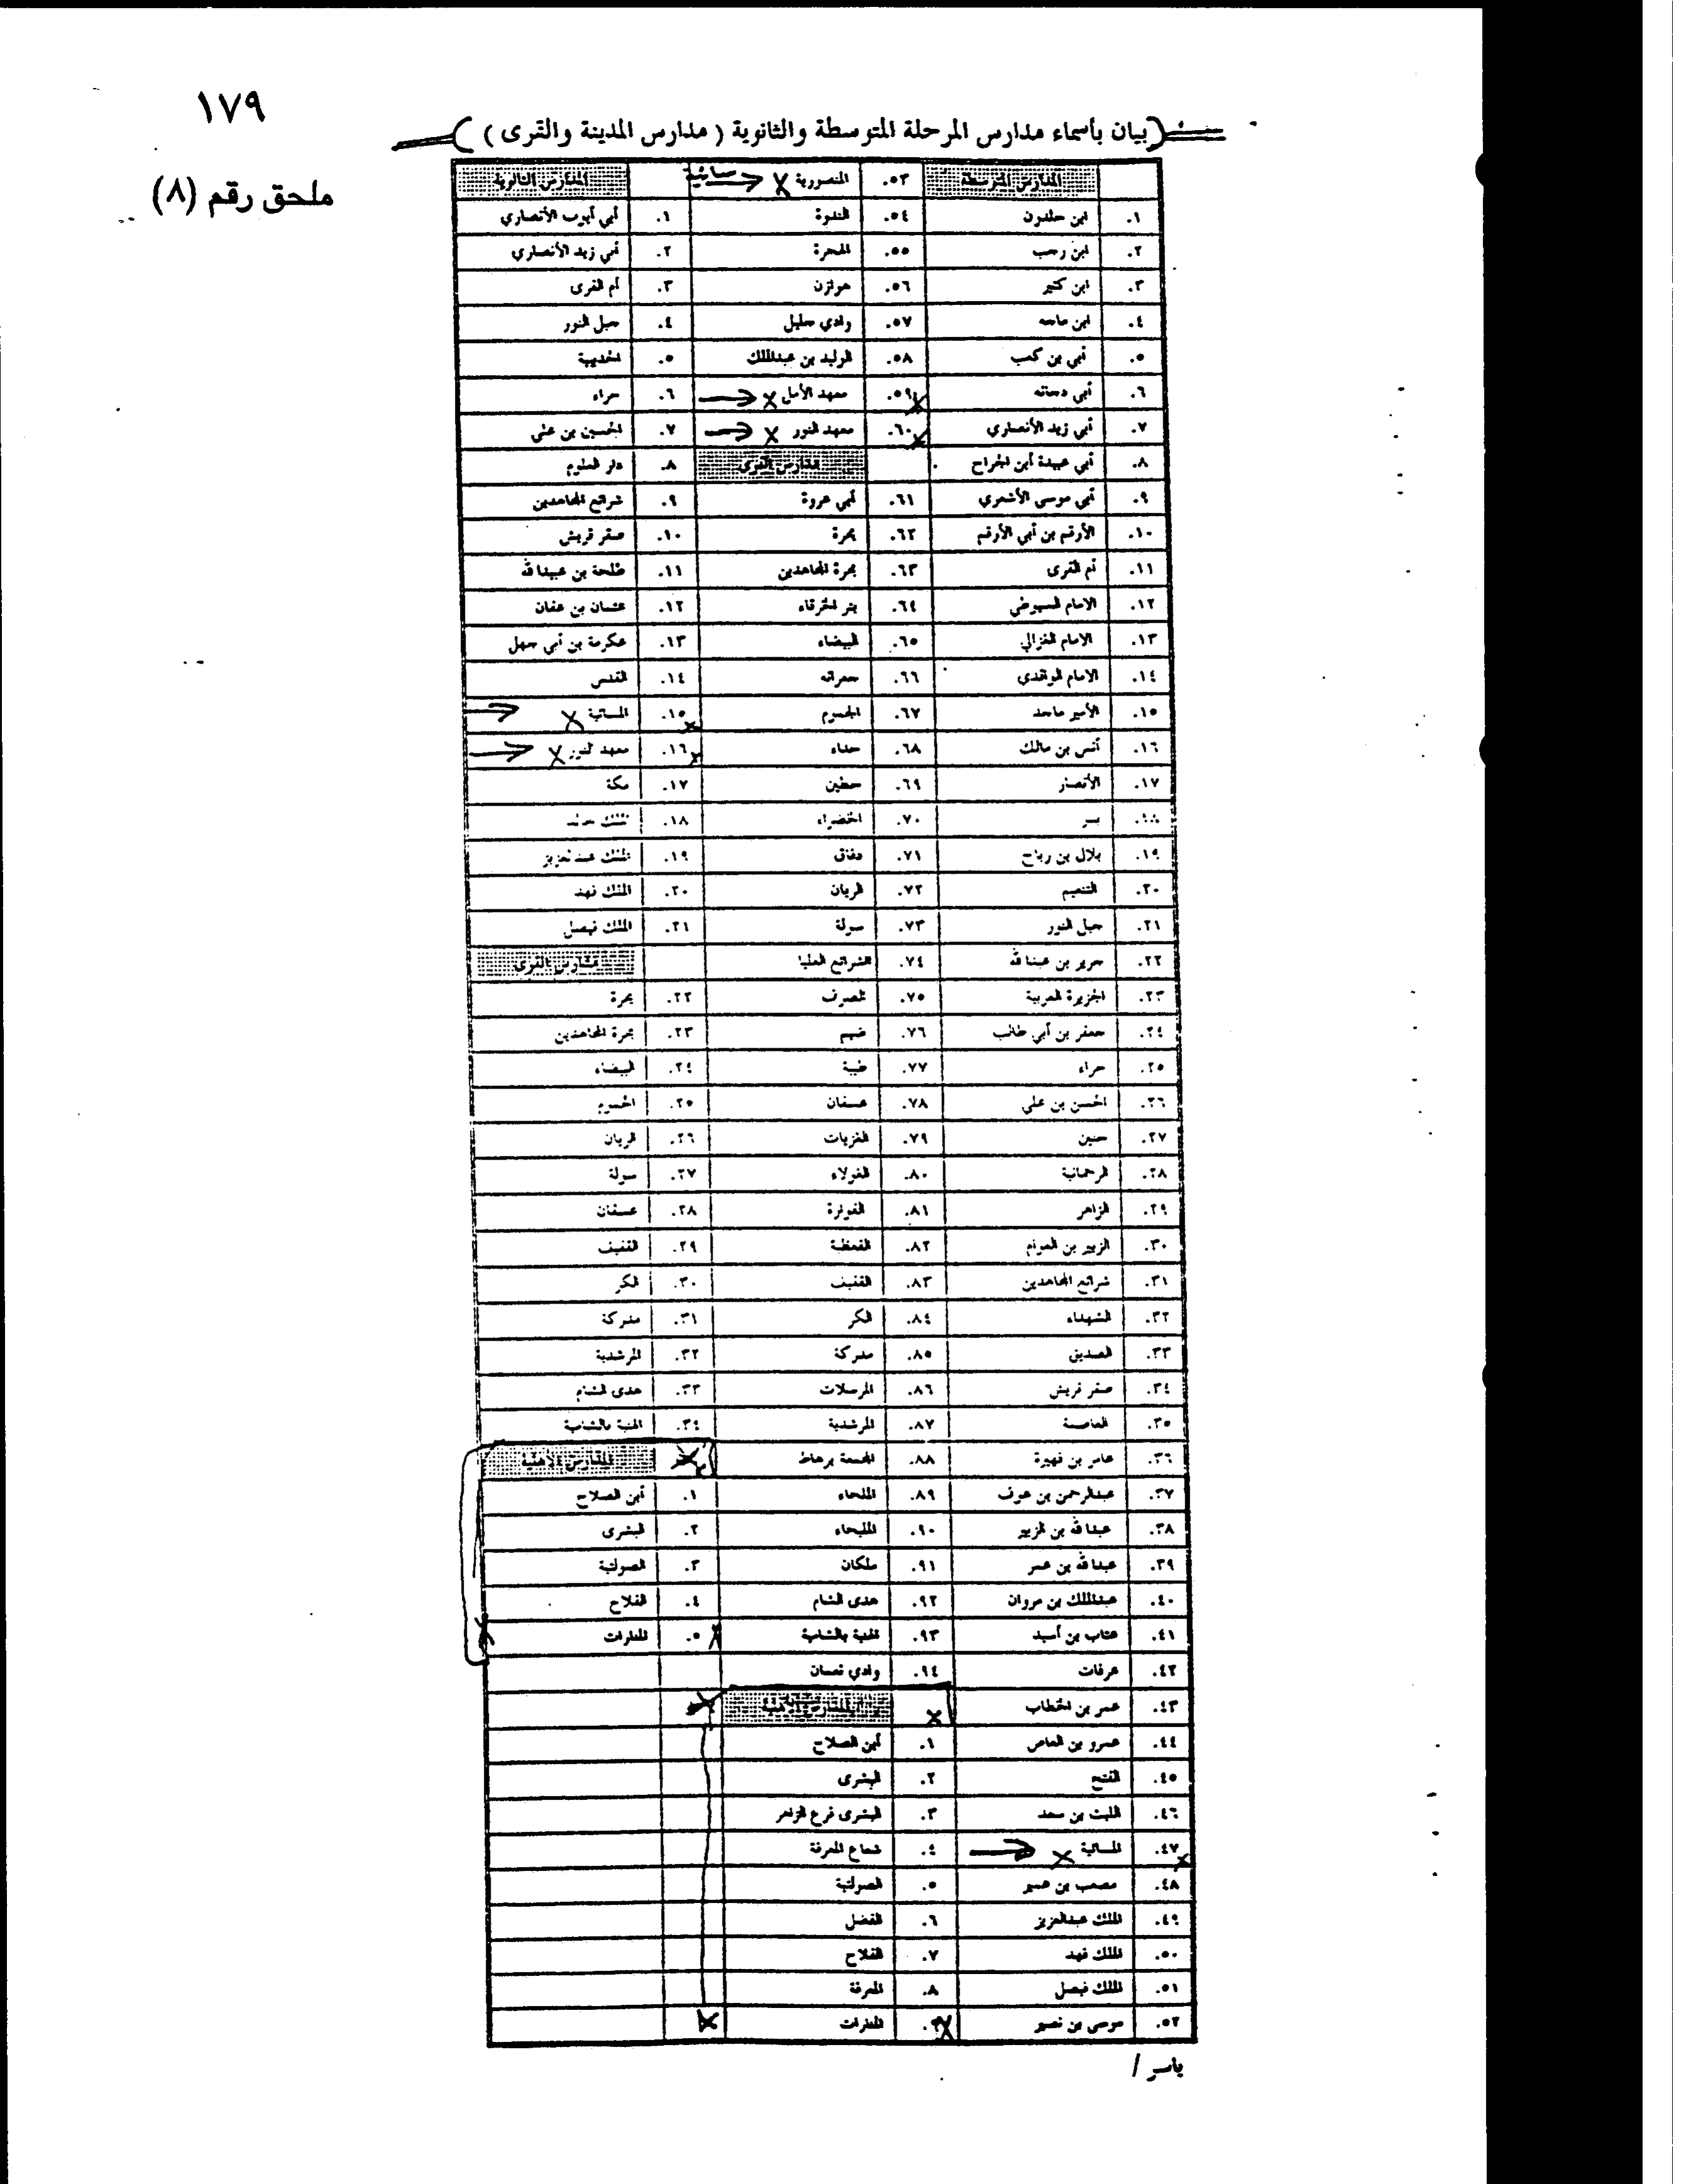 ١٧٩
ملحق رقم (٨)
بيان بأسماء مدارس المرحلة المتوسطة والثانوية ( مدارس المدينة والقرى )
المدارس المتوسطة | ٥٣. المنصورية مسائية | المدارس الثانوية
١. ابن خلدون | ٥٤. الندوة | ١. أبي أيوب الأنصاري
٢. ابن رجب | ٥٥. الهجرة | ٢. أبي زيد الأنصاري
٣. ابن كثير | ٥٦. هوازن | ٣. أم القرى
٤. ابن ماجه | ٥٧. وادي جليل | ٤. جبل النور
٥. أبي بن كعب | ٥٨. الوليد بن عبدالملك | ٥. الحديبية
٦. أبي دجانه | ٥٩. معهد الأمل | ٦. حراء
٧. أبي زيد الأنصاري | ٦٠. معهد النور | ٧. الحسين بن علي
٨. أبي عبيدة ابن الجراح | مدارس القرى | ٨. دار العلوم
٩. أبي موسى الأشعري | ٦١. أبي عروة | ٩. شرائع المجاهدين
١٠. الأرقم بن أبي الأرقم | ٦٢. بحرة | ١٠. صقر قريش
١١. أم القرى | ٦٣. بحرة المجاهدين | ١١. طلحة بن عبيدالله
١٢. الامام السيوطي | ٦٤. بئر الخرقاء | ١٢. عثمان بن عفان
١٣. الامام الغزالي | ٦٥. البيضاء | ١٣. عكرمة بن أبي جهل
١٤. الامام الواقدي | ٦٦. جعرانه | ١٤. القدس
١٥. الأمير ماجد | ٦٧. الجموم | ١٥. المسائية
١٦. أنس بن مالك | ٦٨. حداء | ١٦. معهد النور
١٧. الأنصار | ٦٩. حطين | ١٧. مكة
١٨. بدر | ٧٠. الخضراء | ١٨. الملك خالد
١٩. بلال بن رباح | ٧١. دفاق | ١٩. الملك عبدالعزيز
٢٠. التنعيم | ٧٢. الريان | ٢٠. الملك فهد
٢١. جبل النور | ٧٣. سولة | ٢١. الملك فيصل
٢٢. جرير بن عبدالله | ٧٤. الشرائع العليا | مدارس القرى
٢٣. الجزيرة العربية | ٧٥. الصرف | ٢٢. بحرة
٢٤. جعفر بن أبي طالب | ٧٦. ضيم | ٢٣. بحرة المجاهدين
٢٥. حراء | ٧٧. طيبة | ٢٤. البيضاء
٢٦. الحسن بن علي | ٧٨. عسفان | ٢٥. الجموم
٢٧. حنين | ٧٩. الغزيات | ٢٦. الريان
٢٨. الرحمانية | ٨٠. الغولاء | ٢٧. سولة
٢٩. الزاهر | ٨١. الفوارة | ٢٨. عسفان
٣٠. الزبير بن العوام | ٨٢. القعظبة | ٢٩. القفيف
٣١. شرائع المجاهدين | ٨٣. القفيف | ٣٠. الكر
٣٢. الشهداء | ٨٤. الكر | ٣١. مدركة
٣٣. الصديق | ٨٥. مدركة | ٣٢. المرشدية
٣٤. صقر قريش | ٨٦. المرسلات | ٣٣. هدى الشام
٣٥. العاصمة | ٨٧. المرشدية | ٣٤. الهنية بالشامية
٣٦. عامر بن فهيرة | ٨٨. المجمعة برهاط | المدارس الأهلية
٣٧. عبدالرحمن بن عوف | ٨٩. الملحاء | ١. أبن الصلاح
٣٨. عبدالله بن الزبير | ٩٠. المليحاء | ٢. البشرى
٣٩. عبدالله بن عمر | ٩١. ملكان | ٣. الصولتية
٤٠. عبدالملك بن مروان | ٩٢. هدى الشام | ٤. الفلاح
٤١. عتاب بن أسيد | ٩٣. الهنية بالشامية | ٥. المنارات
٤٢. عرفات | ٩٤. وادي نعمان
٤٣. عمر بن الخطاب | المدارس الأهلية
٤٤. عمرو بن العاص | ١. أبن الصلاح
٤٥. الفتح | ٢. البشرى
٤٦. الليث بن سعد | ٣. البشرى فرع الزاهر
٤٧. المسائية | ٤. شعاع المعرفة
٤٨. مصعب بن عمير | ٥. الصولتية
٤٩. الملك عبدالعزيز | ٦. الفضل
٥٠. الملك فهد | ٧. الفلاح
٥١. الملك فيصل | ٨. المعرفة
٥٢. موسى بن نصير | ٩. المنارات
ياسر /